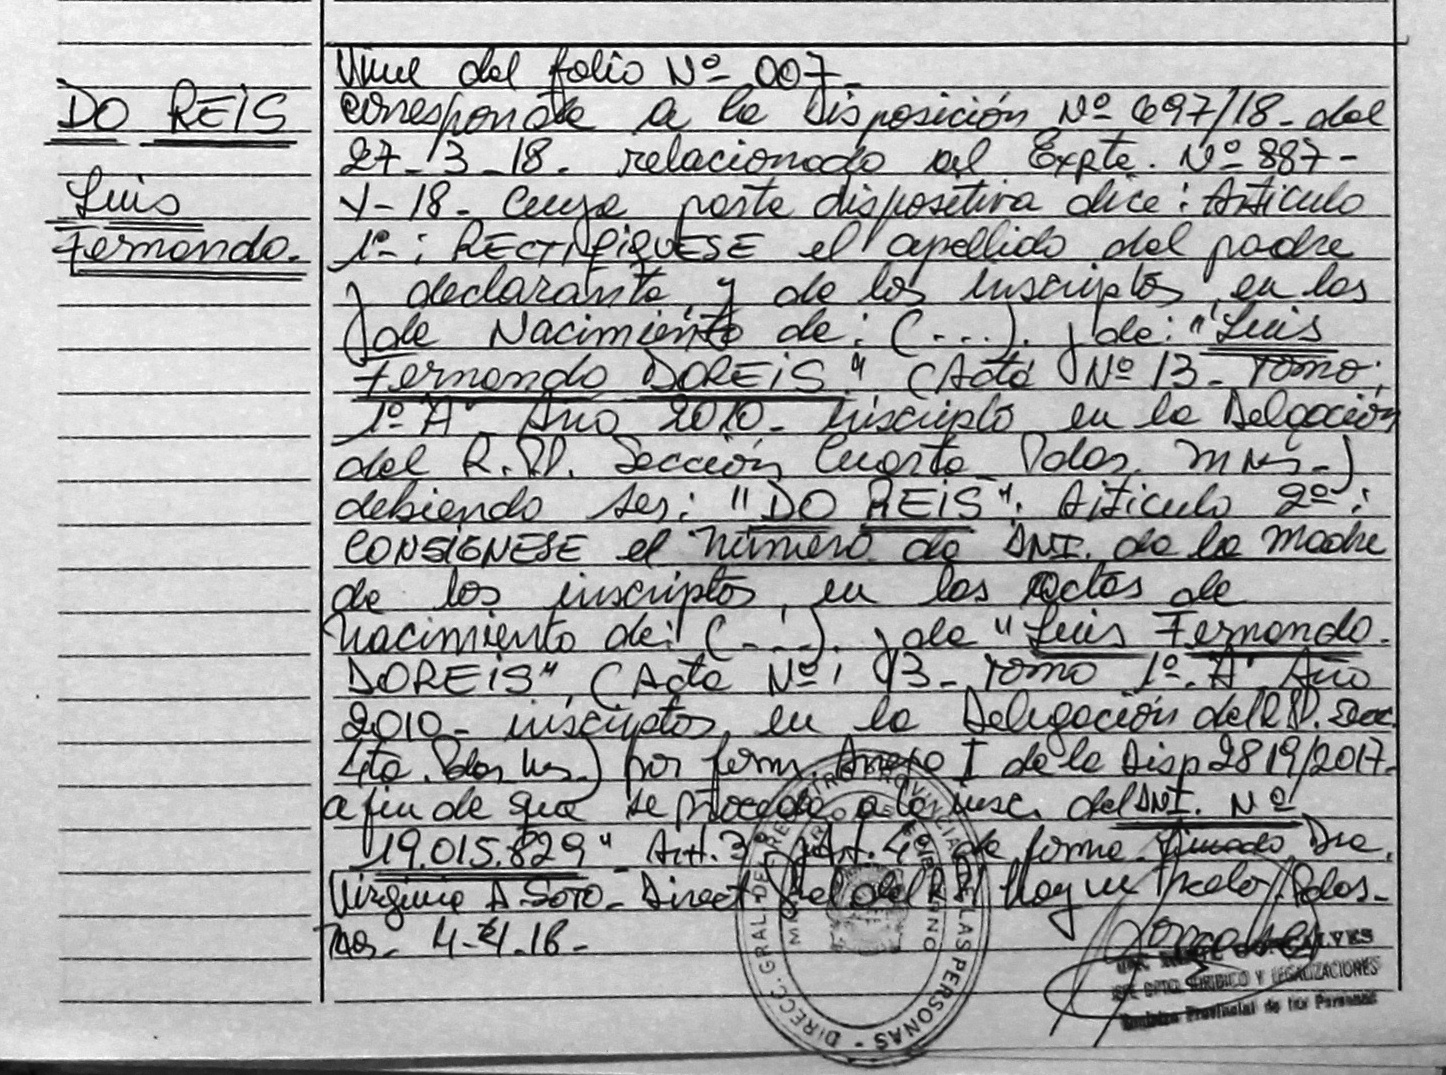 DO REIS
Luis
Fernando.
Viene del folio Nº 007-
corresponde a la Disposición Nº 697/18- del
27-3-18- relacionado al Expte. Nº 887-
Y-18- Cuya parte dispositiva dice: Articulo
1º-: RECTIFIQUESE el apellido del padre
y declarante y de los inscriptos, en las
de Nacimiento de: (...). y de: "Luis
Fernando DOREIS" (Acta Nº 13- Tomo:
1º"A" Año 2010- inscripto en la Delgación
del R.P. Sección Cuarta Pdas. Mnes-)
debiendo ser: "DO REIS". Articulo 2º:
CONSIGNESE el número de DNI. de la madre
de los inscriptos, en las actas de
nacimiento de: (...). y de "Luis Fernando
DOREIS", (Acta Nº: 13- Tomo 1º "A" Año
2010- inscriptos en la Delegación del R.P. Secc.
4ta. Pdas Mes-) por form. Anexo I de la Disp 2819/2017-
a fin de que se proceda a la insc. del DNI. Nº
19.015.829" Art. 3º y Art. 4º de forma. Firmado Dra.
Virginia A. Soto- Direct. del R.P. Hay un sello. Pdas-
Mes- 4-4-18-
DIRECC. GRAL. DE REGISTRO PROVINCIAL DE LAS PERSONAS
JEFE DPTO. JURIDICO Y LEGALIZACIONES
Provincial de las Personas